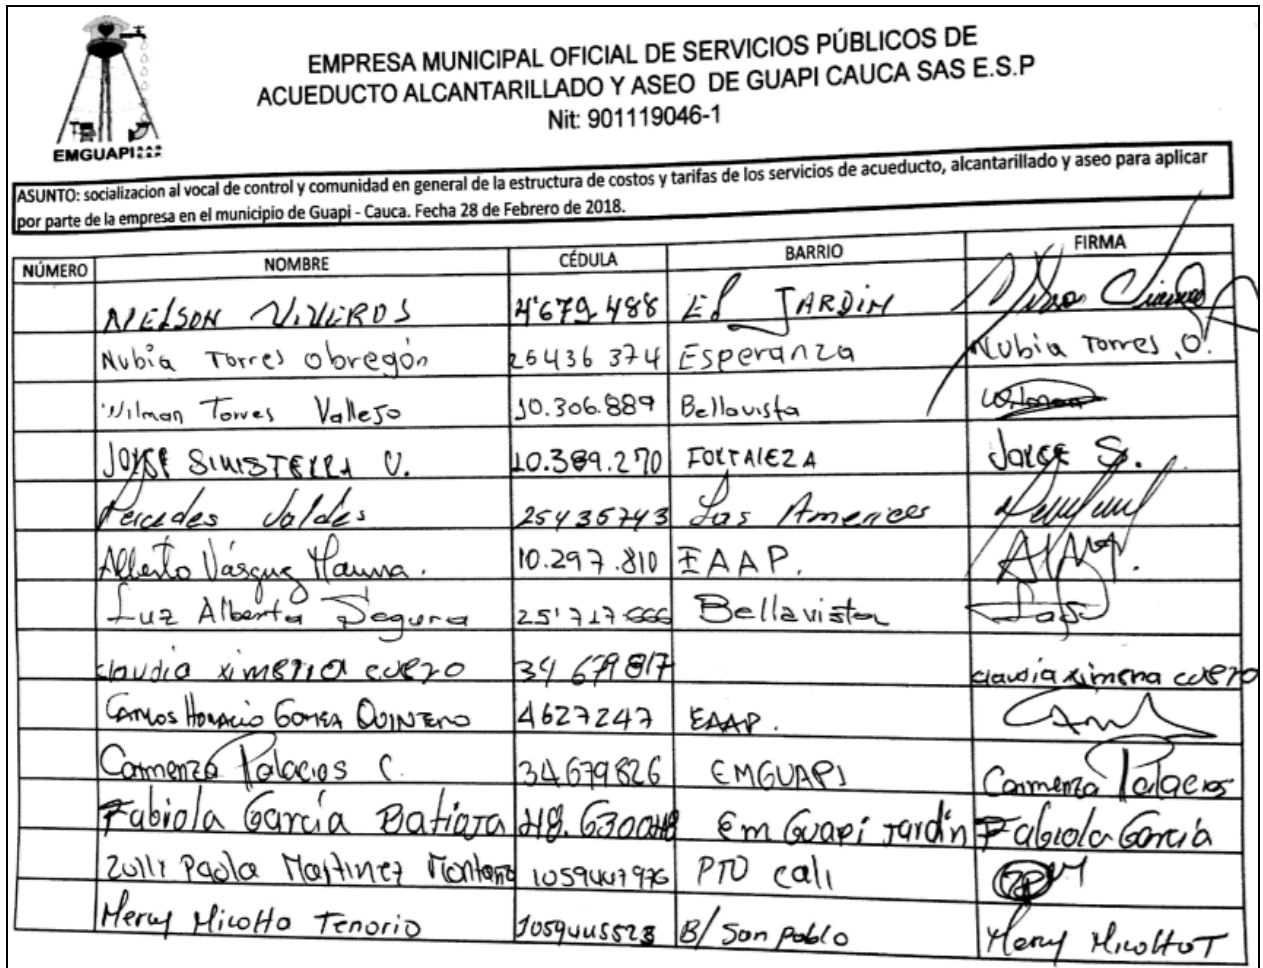 EMPRESA MUNICIPAL OFICIAL DE SERVICIOS PÚBLICOS DE
ACUEDUCTO ALCANTARILLADO Y ASEO DE GUAPI CAUCA SAS E.S.P
Nit: 901119046-1
EMGUAPI
ASUNTO: socializacion al vocal de control y comunidad en general de la estructura de costos y tarifas de los servicios de acueducto, alcantarillado y aseo para aplicar
por parte de la empresa en el municipio de Guapi - Cauca. Fecha 28 de Febrero de 2018.
NÚMERO NOMBRE CÉDULA BARRIO FIRMA
NELSON VIVEROS 4'679.488 El JARDIN
Nubia Torres Obregón 25436 374 Esperanza Nubia Torres .O.
Wilman Torres Vallejo 10.306.889 Bellavista
JORGE SINISTERRA V. 10.389.270 FORTALEZA JORGE S.
Mercedes Valdes 25435743 Las Americas
Alberto Vásquez 10.297.810 EAAP.
Luz Alberta Segura 25'717.666 Bellavista
claudia ximena cuero 34 679 817 claudia ximena cuero
CARLOS HORACIO GOMEZ QUINTERO 4627247 EAAP.
Carmenza Palacios C. 34679826 EMGUAPI Carmenza Palacios
Fabiola García Em Guapi Jardín Fabiola García
Zulli Paola Martinez Montaño 1059447976 PTO cali
Mercy Micolta Tenorio 1059445523 B/ San pablo Mercy Micolta T